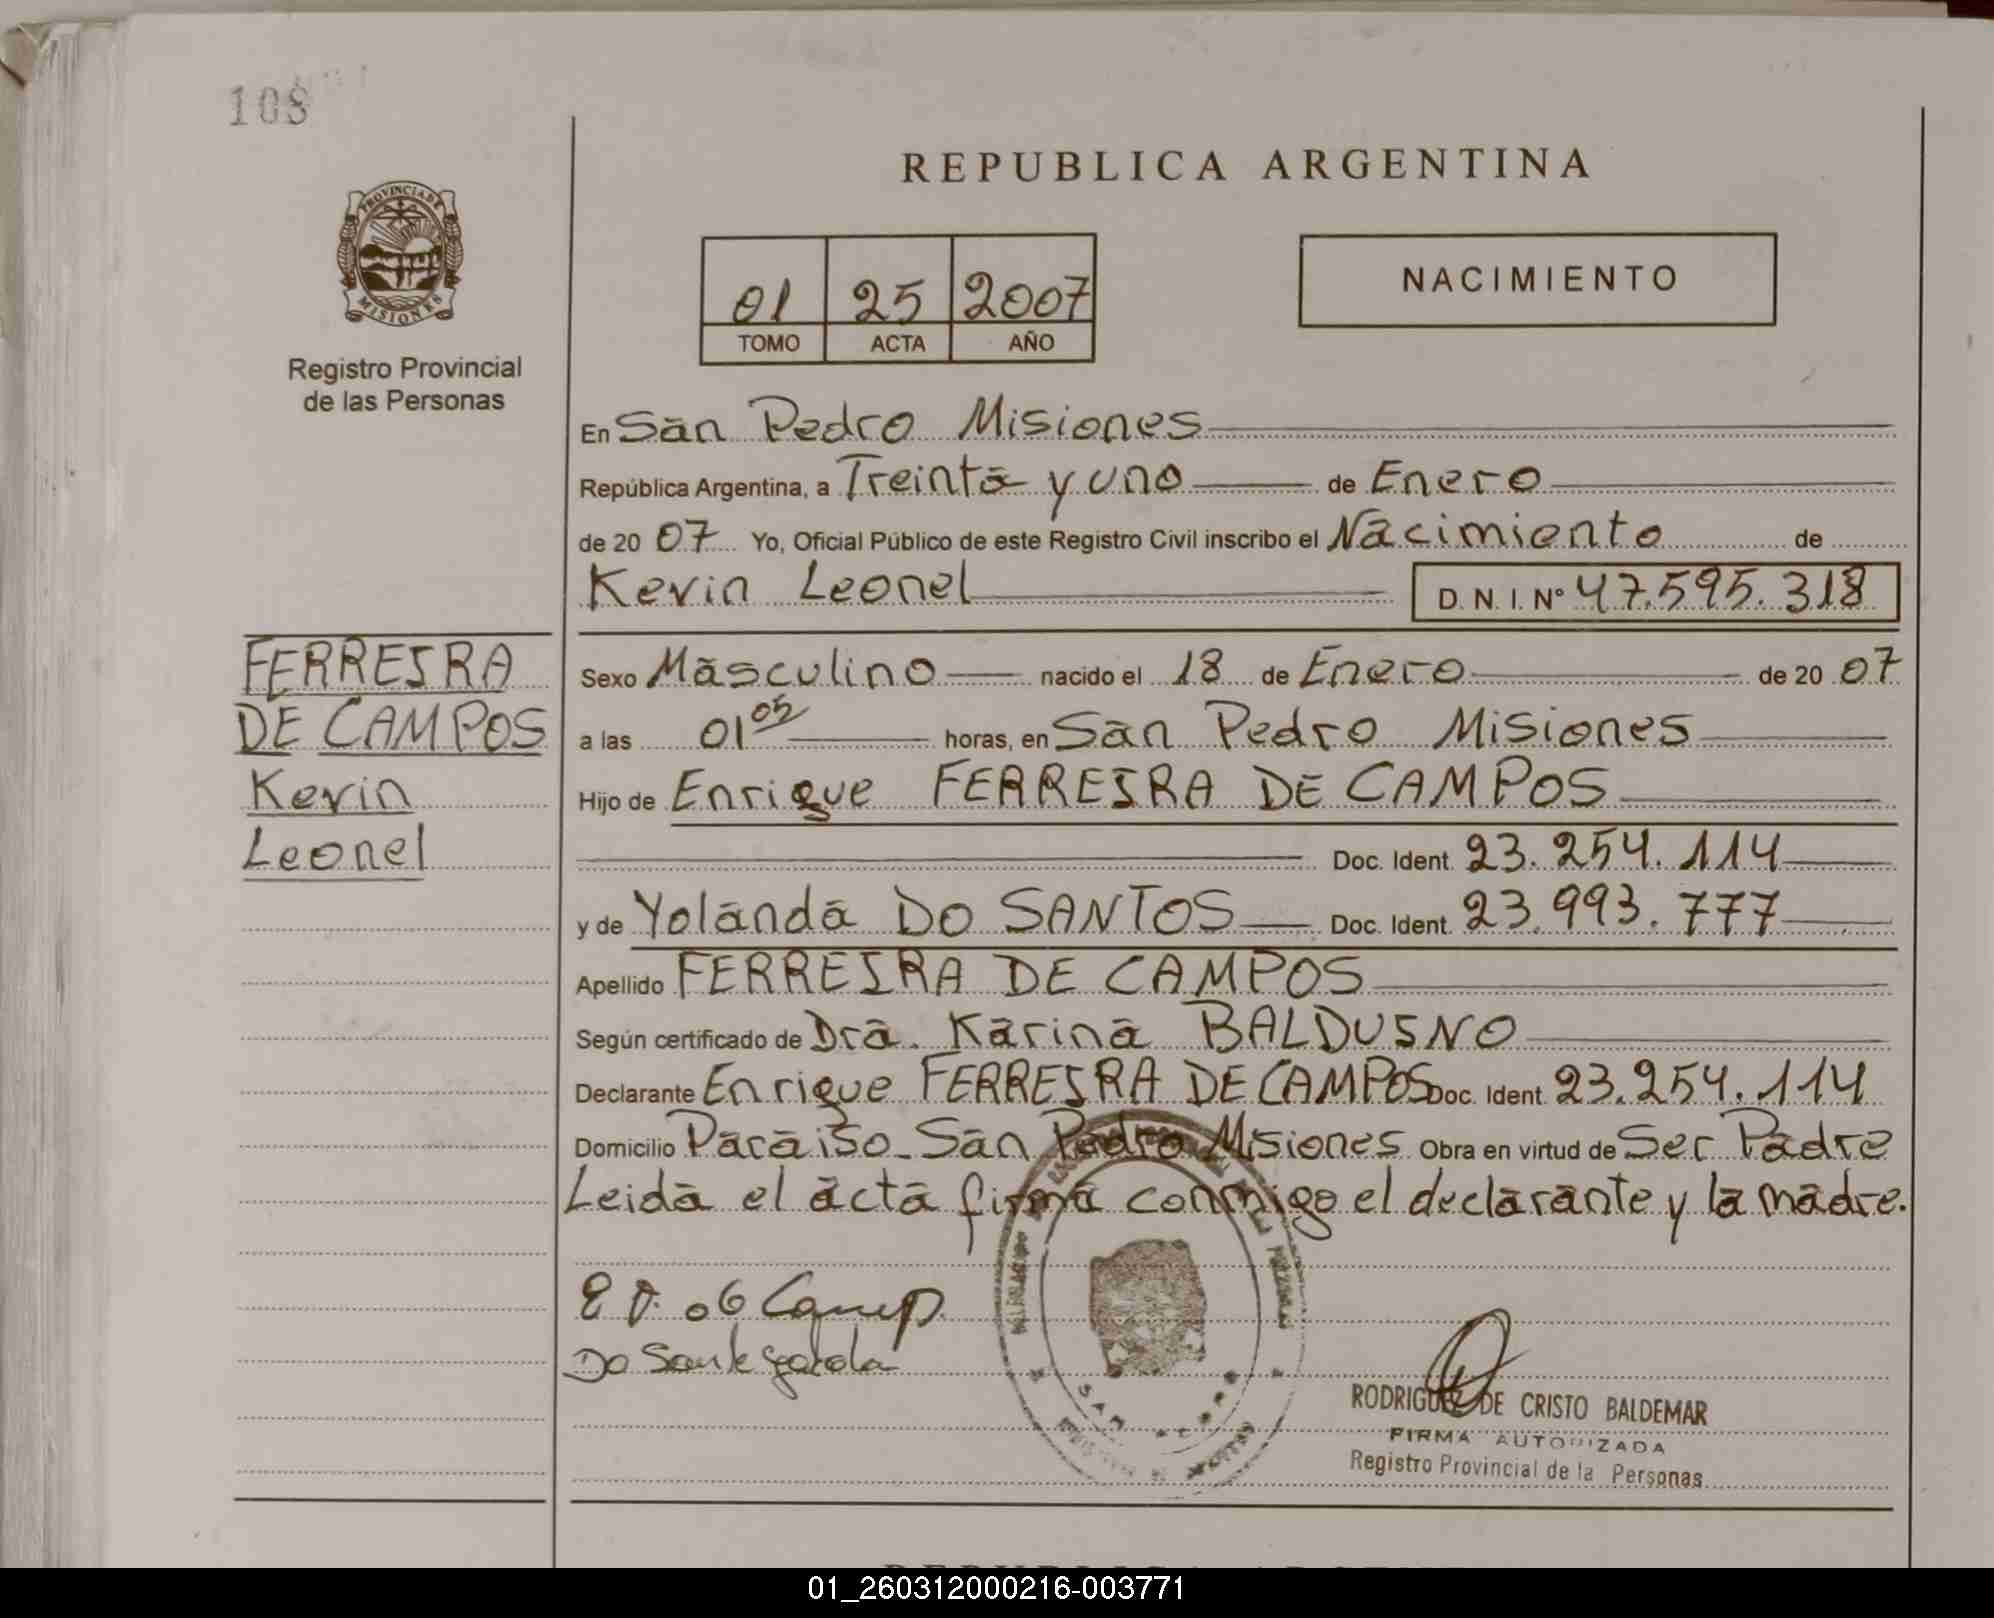 108
REPUBLICA ARGENTINA
PROVINCIA DE
MISIONES
Registro Provincial
de las Personas
01 25 2007
TOMO ACTA AÑO
NACIMIENTO
En San Pedro Misiones
República Argentina, a Treinta y uno de Enero
de 20 07 Yo, Oficial Público de este Registro Civil inscribo el Nacimiento de
Kevin Leonel D. N. I. N° 47.595.318
FERREIRA
DE CAMPOS
Kevin
Leonel
Sexo Masculino nacido el 18 de Enero de 20 07
a las 01 05 horas, en San Pedro Misiones
Hijo de Enrique FERREIRA DE CAMPOS
Doc. Ident. 23.254.114
y de Yolanda DO SANTOS Doc. Ident. 23.993.777
Apellido FERREIRA DE CAMPOS
Según certificado de Dra. Karina BALDUINO
Declarante Enrique FERREIRA DE CAMPOS Doc. Ident. 23.254.114
Domicilio Paraiso - San Pedro Misiones Obra en virtud de Ser Padre
Leida el acta firma conmigo el declarante y la madre.
RODRIGUEZ DE CRISTO BALDEMAR
FIRMA AUTORIZADA
Registro Provincial de la Personas
01_260312000216-003771